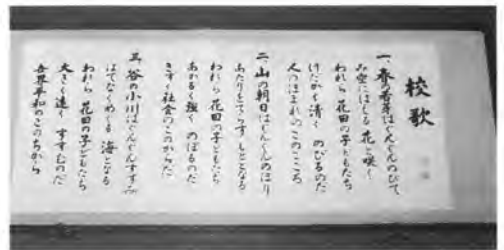 校歌
一、春の若芽はぐんぐんのびて
み空にはぐくむ 花と咲く
われら 花田の子どもたち
けだかく清く のびるのだ
人のほまれの このこころ
二、山の朝日はぐんぐんのぼり
あたりをてらす もととなる
われら 花田の子どもたち
あかるく強く のぼるのだ
きずく社会の このからだ
三、谷の小川はぐんぐんすすみ
はてなくめぐる 海となる
われら 花田の子どもたち
大きく遠く すすむのだ
世界平和の このちから